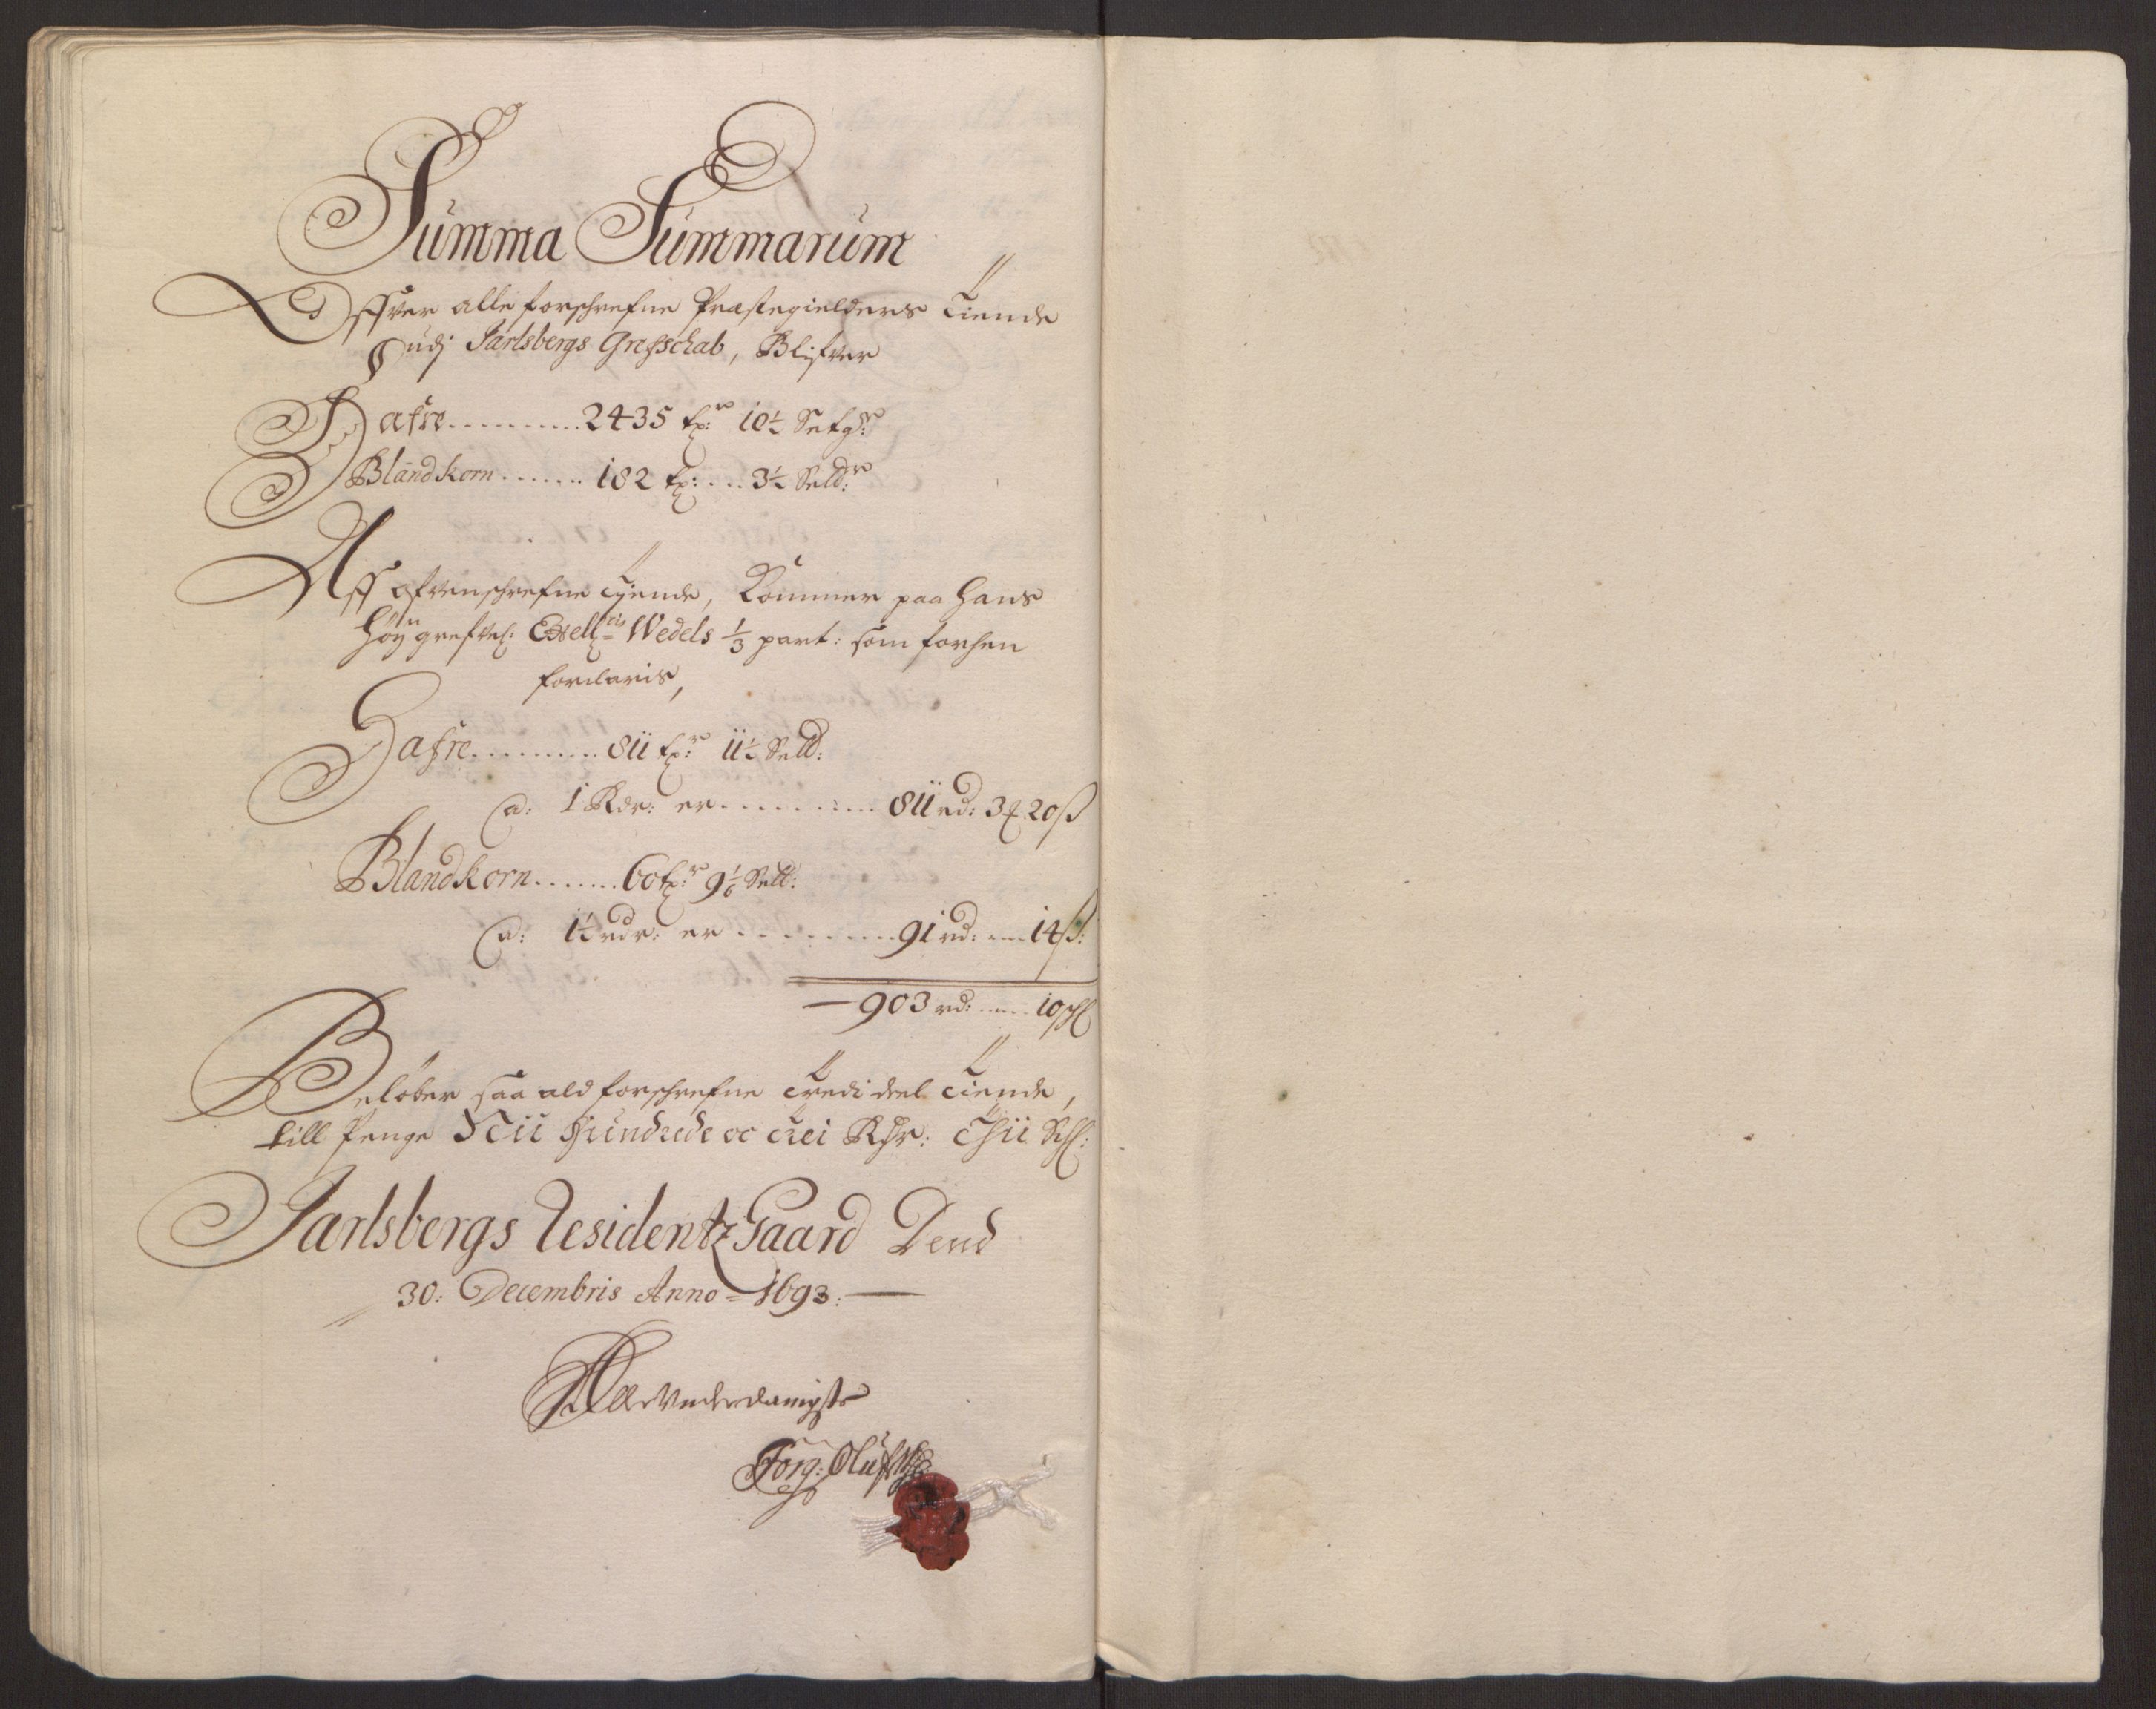 Summa Summarum
Offver alle forschrefne Præstegielders Tiende
udj Jarlsbergs Grefschab, Blifver
Hafre.......... 2435 tr: 10½
Blandkorn....... 182 tr: ... 3½
Aff ofvenschrefne Tjende, Kommer paa Hans
Høy grefvel: Excell: Wedels ⅓ part: som forhen
forclaris,
Hafre......... 811 tr: 11½
a: 1 Rdr: er.......... 811 rd: 3 20 ß
Blandkorn....... 60 tr: 9
a: 1½ rdr: er ......... 91 rd: .... 14 ß:
903 rd: .... 10
Beløber saa ald forschrefne tredi deel Tiende,
till Penge Nii Hundrede oc trei Rdr: Thii
Jarlsbergs Residentz Gaard Dend
30: Decembris Anno 1693:
Allerunderdanigste
Jørg: Oluf